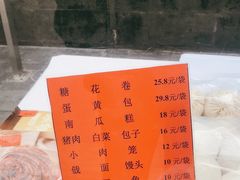 糖花卷 25.8元/袋
蛋黄包 29.8元/袋
南瓜糕 18元/袋
猪肉白菜包子 16元/袋
小肉笼 12元/袋
戗面馒头 10元/袋
10元/袋